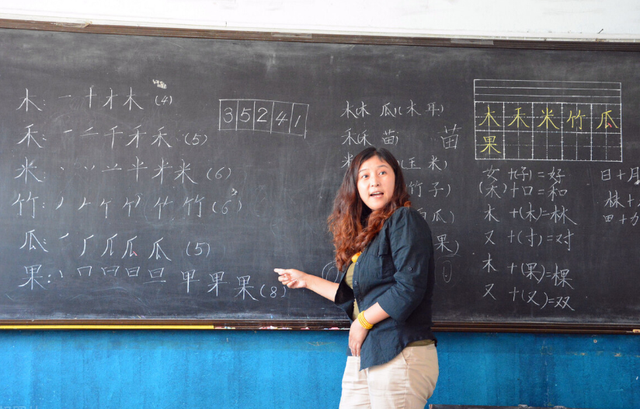 木: 一 十 才 木 (4)
禾: 一 二 千 禾 禾 (5)
米: 丷 半 米 米 (6)
竹: 竹 竹 (6)
瓜: 一 厂 瓜 瓜 瓜 (5)
果: 丨 冂 日 旦 甲 果 果 (8)
3 5 2 4 1
木 林 瓜 (木耳)
禾 苗 苗
米 (玉米)
(竹子)
(白瓜)
果)
木 禾 米 竹 瓜
果
女+(子)=好
(禾)+口=和
木+(木)=林
又+(寸)=对
木+(果)=棵
又+(又)=双
日+月
林+
田+力